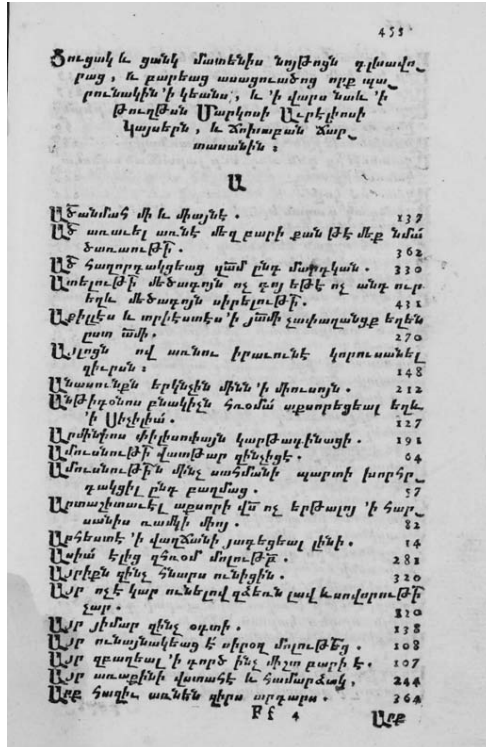 455
Ցուցակ և ցանկ մատենիս նոյթոցն գլխաւո֊
րաց, և բարեաց ասացուածոց որք պա֊
րունակին ՚ի կեանս, և ՚ի վարս նաև ՚ի
Թուղթսն Մարկոսի Աւրէլիոսի
կայսերն, և Ճոխաբան Ճար֊
տասանին :
Ա
Ած անմահ մի և միայնէ . 137
Ած առաւել առնէ մեզ բարի քան թէ մեք նմա
ծառաութի . 362
Ած հաղորդակցեաց ընդ մարդկան . 330
Ատելութի մեծագոյն ոչ գոյ եթէ ոչ անդ ուր
եղև մեծագոյն սիրելութի . 431
Աքիլլէս և ՚ի չափաղանցք եղեն
270
Այլոցն ով առնու իրաւունէ կորուսանել
զիւրսն : 148
Անասունքն երկնչին մինն ՚ի միուսոյն . 212
Անթիգօնոս բնակիչն հռօմա աքսորեցեալ եղև
՚ի Սիչիլիա . 127
Արմինիոս փիլիսոփայն կարթագինացի . 191
Ամուսնութի վատթար զինչիցէ . 64
Ամուսնութին մինչ սահմանի պարտի խորհր֊
դակցիլ ընդ բաղմաց . 57
Արտաշիտաւէլ աքսորի ոչ երթալոյ ՚ի հար֊
սանիս ռամկի միոյ . 82
Արհեստէ ՚ի վաղճանի յագեցեալ լինի . 14
Ասիա ելից զհռօմ . 281
Այրիքն զինչ հնարս ունիցին . 320
Այր ոչէ կար ունելով զձեռն լաւ և սովորութի
չար . 320
Այր յիմար զինչ օգտի . 138
Այր ունայնակեաց է սիրօղ մոլութեց . 108
Այր զբաղեալ ՚ի գործ ինչ միշտ բարի է . 107
Այր առաքինի վստահէ և համարձակ . 244
Արք հաղիւ առնեն զիրս արդարս . 364
F f 4 Արք